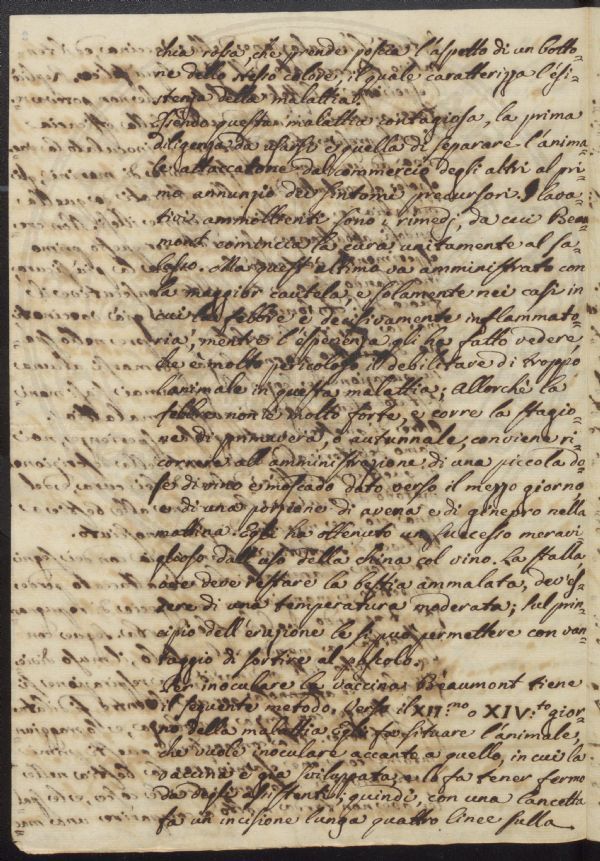 chia rossa, che prende poscia l'aspetto di un botto=
ne dello stesso colore, il quale caratterizza l'esi=
stenza della malattia.
Essendo questa malattia contagiosa, la prima
diligenza da usarsi è quella di separare l'anima=
le attaccatone dal commercio degli altri al pri=
mo annunzio dei sintomi precursori. I lava=
tivi ammollienti sono i rimedj, da cui Beau=
mont comincia la cura unitamente al sa=
lasso. Ma quest'ultimo va amministrato con
la maggior cautela, e solamente nei casi in
cui la febbre è decisivamente inflammato=
ria, mentre l'esperienza gli ha fatto vedere
che è molto pericoloso il debilitare di troppo
l'animale in questa malattia; allorchè la
febbre non è molto forte, e corre la stagio=
ne di primavera, o autunnale, conviene ri=
correre all'amministrazione di una piccola do=
se di vino e moscado dato verso il mezzo giorno
e di una porzione di avena e di ginepro nella
mattina. Egli ha ottenuto un successo meravi=
glioso dall'uso della china col vino. La stalla,
ove deve restare la bestia ammalata, dev'es=
sere di una temperatura moderata; sul prin=
cipio dell'eruzione le si può permettere con van=
taggio di sortire al pascolo.
Per inoculare la vaccina Beaumont tiene
il seguente metodo. Verso il XII.mo o XIV.to gior=
no della malattia Egli fa situare l'animale,
che vuole inoculare accanto a quello, in cui la
vaccina è già sviluppata, e lo fa tener fermo
da degli assistenti; quindi, con una lancetta
fa un'incisione lunga quattro linee sulla